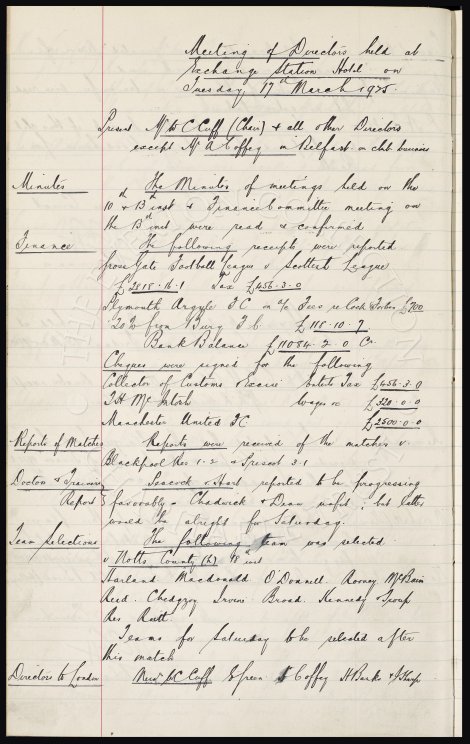 Meeting of Directors held at
Exchange Station Hotel on
Tuesday 17th March 1925.
Present Mr W C Cuff (Chair) & all other Directors
except Mr A Coffey in Belfast on club business
Minutes The Minutes of meetings held on the
10 & 13th inst & Finance Committee meeting on
the 13th inst were read & confirmed
Finance The following receipts were reported
Gross Gate Football League v Scottish League
£2818.16.1 Tax £456.3.0
Plymouth Argyle FC on a/c Fees re Cock Forbes £700
20% from Bury FC £115.10.7
Bank Balance £11054.2.0 Cr
Cheques were signed for the following
Collector of Customs & Excise Enterts Tax £456.3.0
T H McIntosh Wages &c £320.0.0
Manchester United FC £2500.0.0
Reports of Matches Reports were received of the matches v.
Blackpool Res 1-2 & Prescot 3-1
Doctor & Trainers Peacock & Hart reported to be progressing
Report favorably - Chadwick & Dean unfit; but latter
would be alright for Saturday.
Team Selections The following team was selected
v Notts County (h) 18th inst
Harland Macdonald O'Donnell Rooney McBain
Reid Chedgzoy Irvine Broad Kennedy & Troup
Res
Teams for Saturday to be selected after
this match
Directors to London Messrs W C Cuff E Green A Coffey H Banks & J Sharp